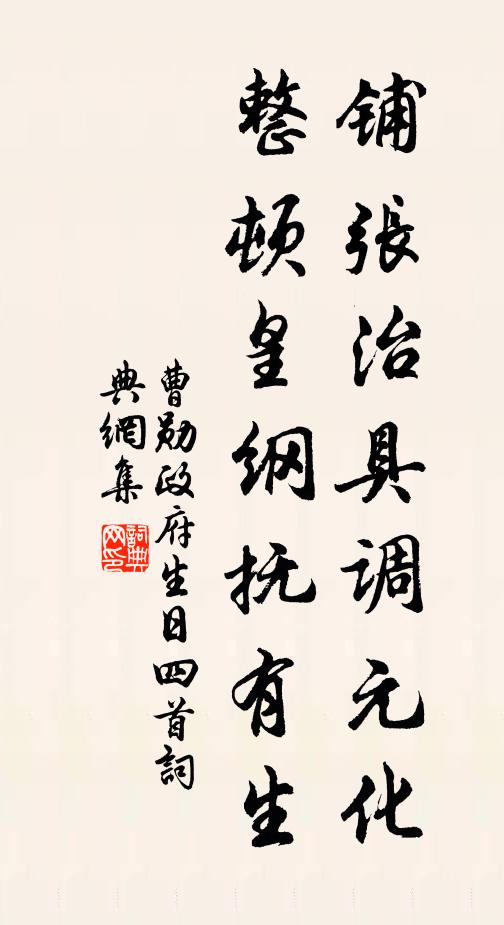 铺張治具调元化
整顿皇纲抚有生
曹勋政府生日四首詞
典網集
詞典
网印